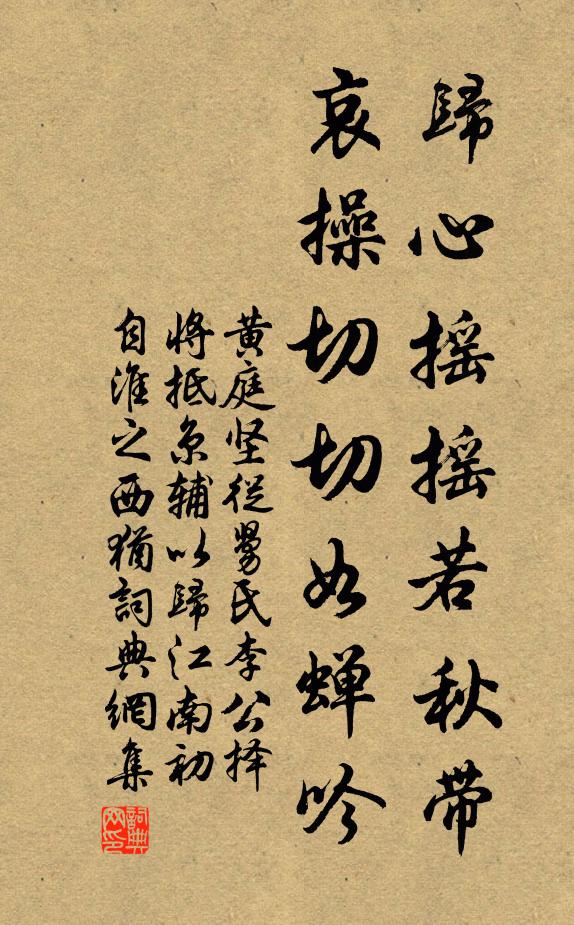 歸心摇摇若秋带
哀操切切如蝉吟
黄庭坚從舅氏李公择
將抵京辅以歸江南初
自淮之西猶詞典網集
詞典网印